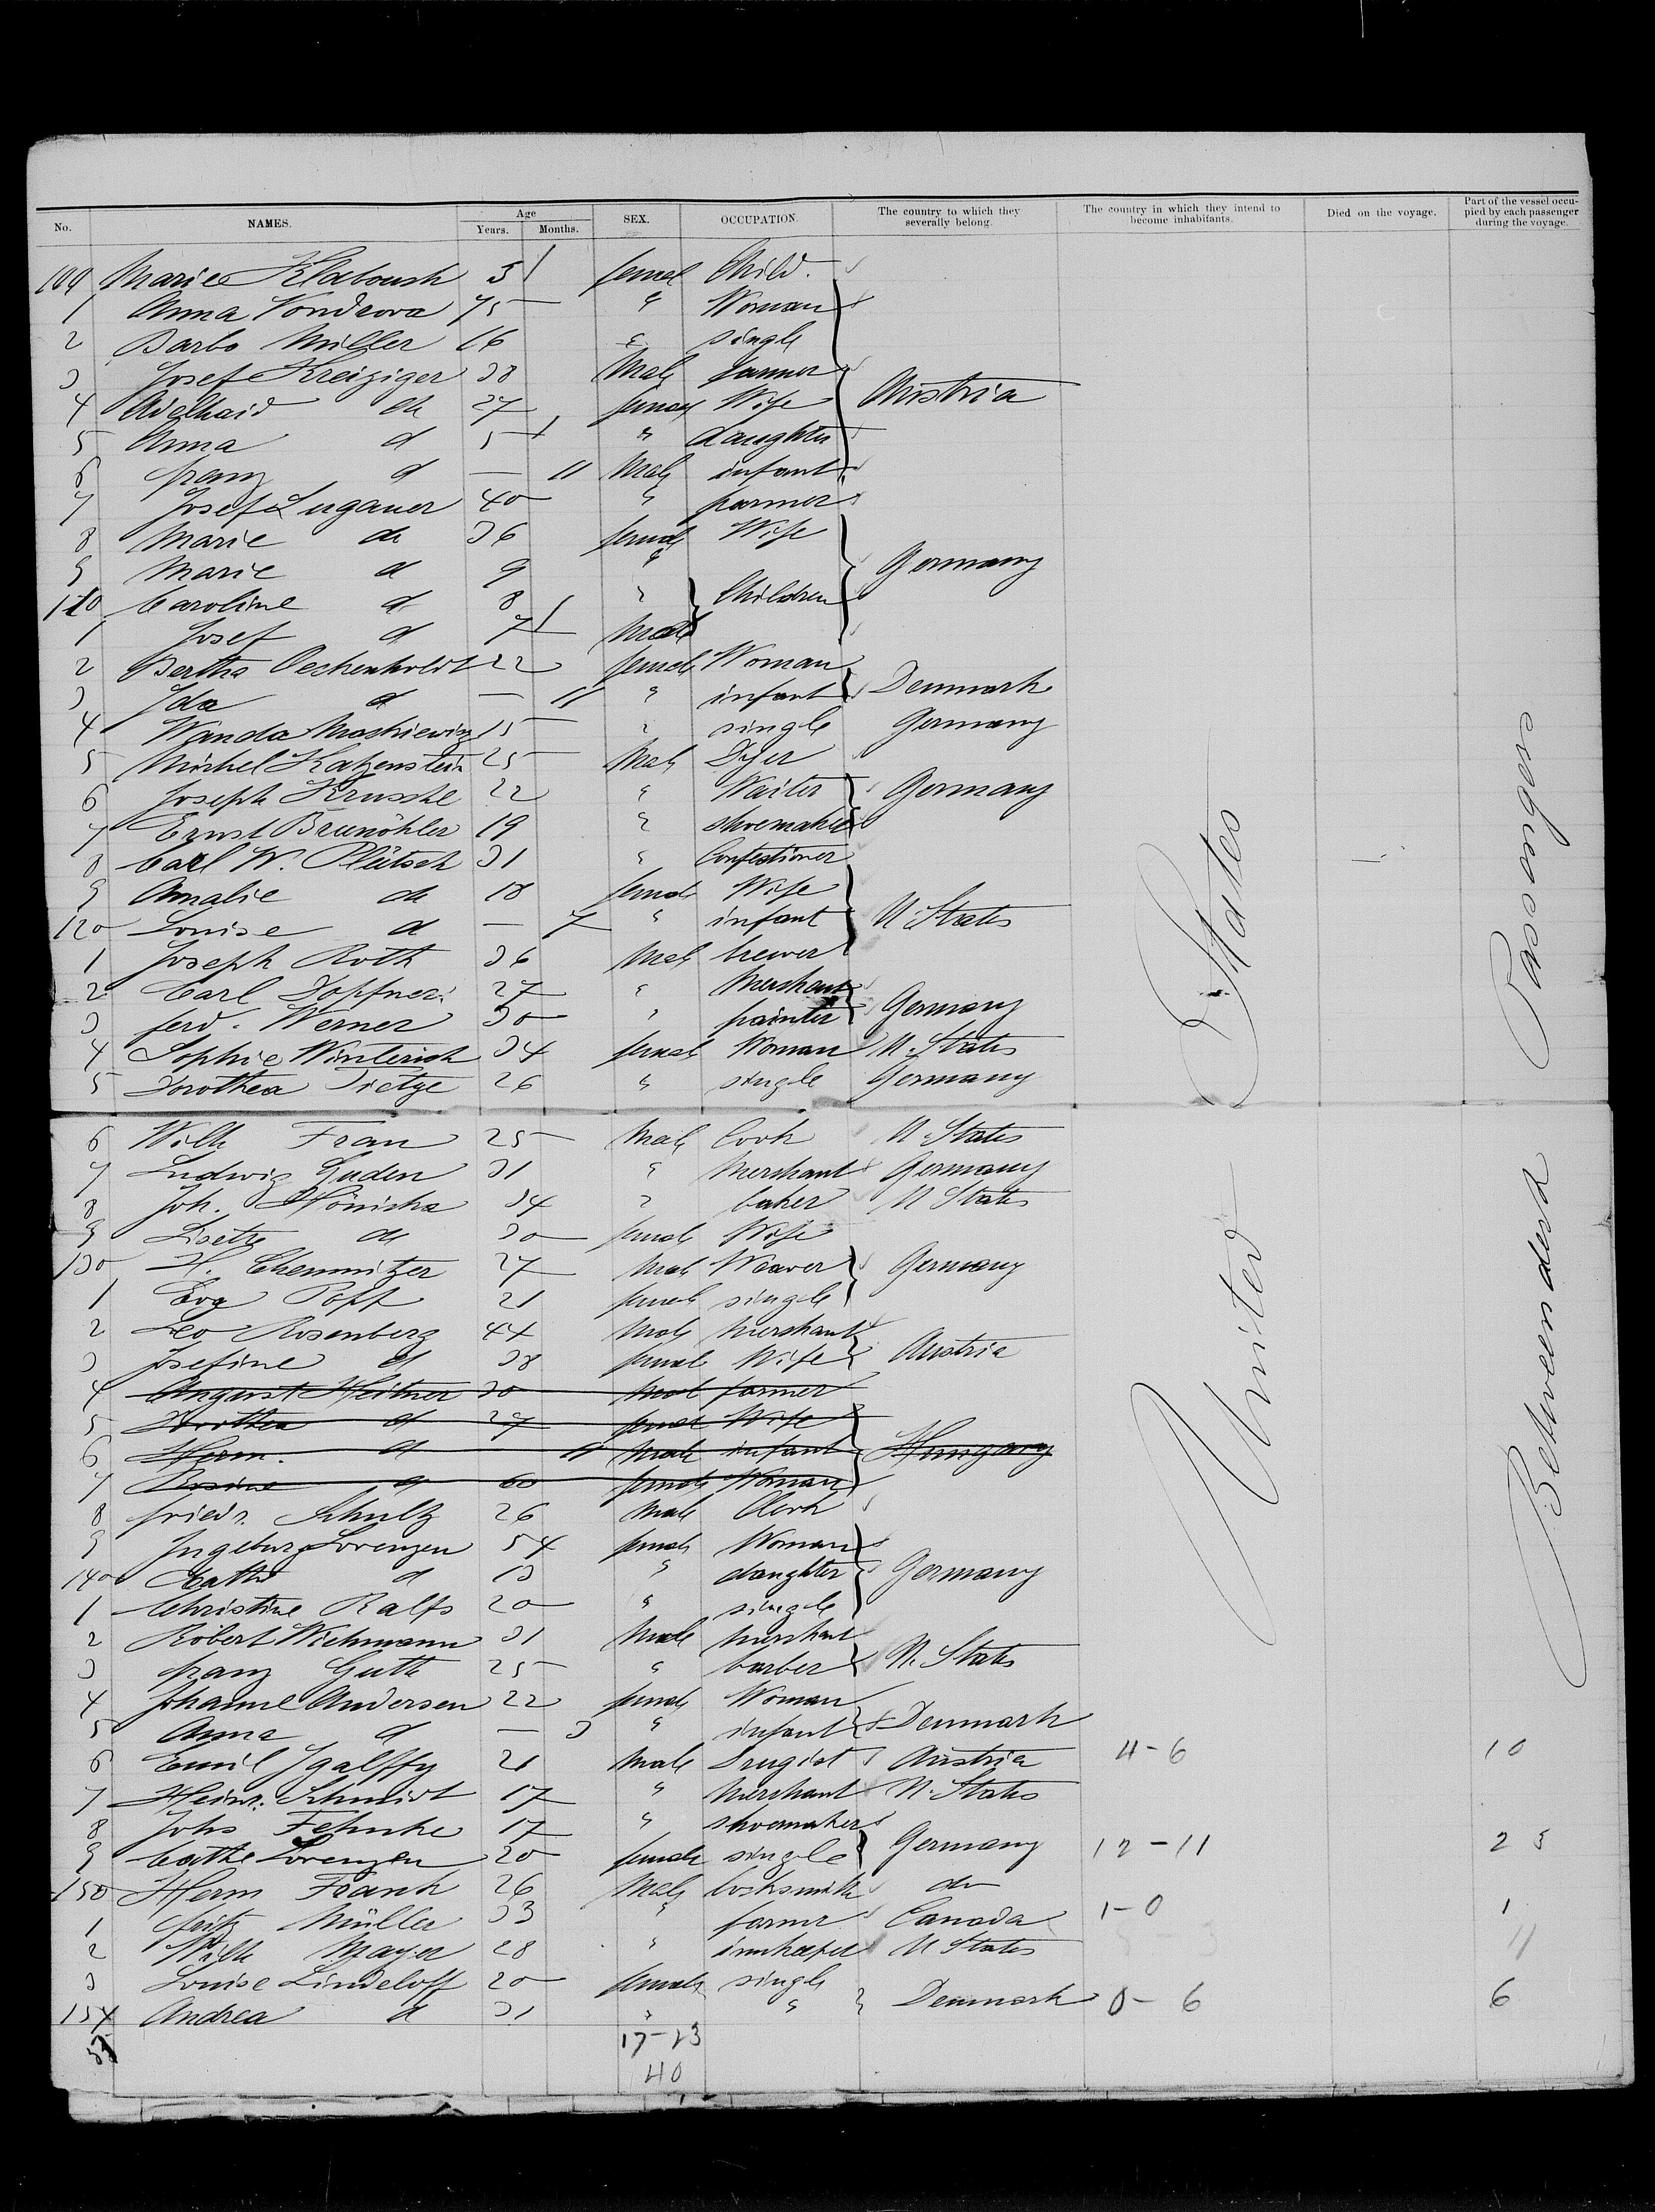 No. NAMES. Age Years. Months. SEX. OCCUPATION. The country to which they severally belong. The country in which they intend to become inhabitants. Died on the voyage. Part of the vessel occupied by each passenger during the voyage.
100 Marie Klaboush 3 femal Child.
1 Anna Vondrova 75 " Woman
2 Barbo Miller 16 " single
3 Josef Kreiziger 38 Male farmer
4 Adelhaid do 27 female Wife Austria
5 Anna d 5 " daughter
6 franz d — 11 Male infant
7 Josef Luganer 40 " farmer
8 Marie do 36 female Wife
9 Marie d 9 " Germany
110 Caroline d 8 " Children
1 Josef d 7 Male
2 Bertha Oechenholdt 22 female Woman
3 Ida d — 11 " infant Denmark
4 Wanda Maskiewicz 15 " single Germany
5 Michel Katzenstein 25 Male Dyer
6 Joseph Krusche 22 " Waiter Germany
7 Ernst Brunöhler 19 " shoemaker
8 Carl W. Plütsch 31 " Confectioner
9 Amalie do 18 female Wife
120 Louise d — 7 " infant U. States
1 Joseph Roth 36 Male brewer
2 Carl Dopfner 27 " Merchant
3 ferd. Werner 30 " painter Germany
4 Sophie Winterich 34 female Woman U. States
5 Dorothea Tietge 26 " single Germany
6 Wilh Fran 25 Male Cook U. States
7 Ludwig Guden 31 " Merchant Germany
8 Joh. Hönicka 34 " baker U States
9 Lisette do 30 female Wife
130 H. Chemnitzer 27 Male Weaver Germany
1 Eva Popp 21 female single
2 Leo Rosenberg 44 Male Merchant
3 Josefine d 38 female Wife Austria
4 August Heitner 30 Male farmer
5 Dorothea d 27 female Wife
6 Herm. d 11 Male infant Hungary
7 Rosine d 60 female Woman
8 friedr. Schultz 26 Male Clerk
9 Ingeburg Lorenzen 54 female Woman
140 Cathr d 13 " daughter Germany
1 Christine Ralfs 20 " single
2 Robert Wichmann 31 Male Merchant
3 franz Guth 25 " barber U. States
4 Johanne Andersen 22 female Woman
5 Anna d — 3 " infant Denmark
6 Emil Igalffy 21 Male Drugist Austria 4-6 10
7 Heinr. Schmidt 17 " Merchant U. States
8 Johs Fehnke 17 " shoemaker
9 Cathe Lorenzen 20 female single Germany 12-11 23
150 Herm Frank 26 Male locksmith do
1 fritz Müller 33 " farmer Canada 1-0 1
2 Wilh Mayer 28 " innkeeper U States 11
3 Louise Lindeloff 20 female single
154 Andrea d 31 " " Denmark 0-6 6
17-23
40
United States
Betweendeck Passengers